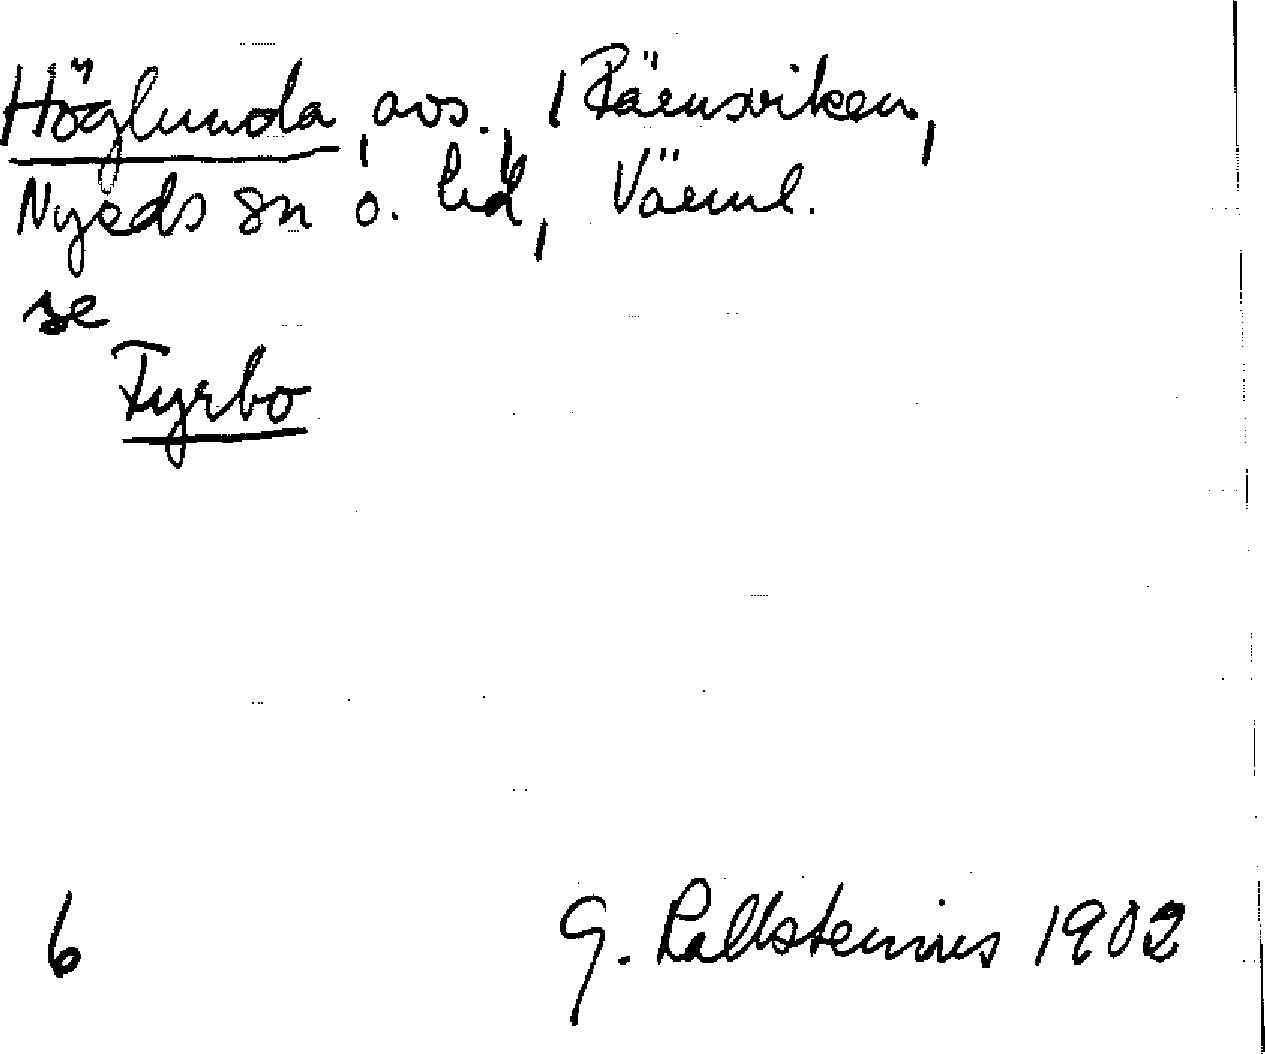 Höglunda, avs., Räensviken,
Nyeds sn o. hd, Värml.
se
Tyrbo
6 G. Kallstenius 1902